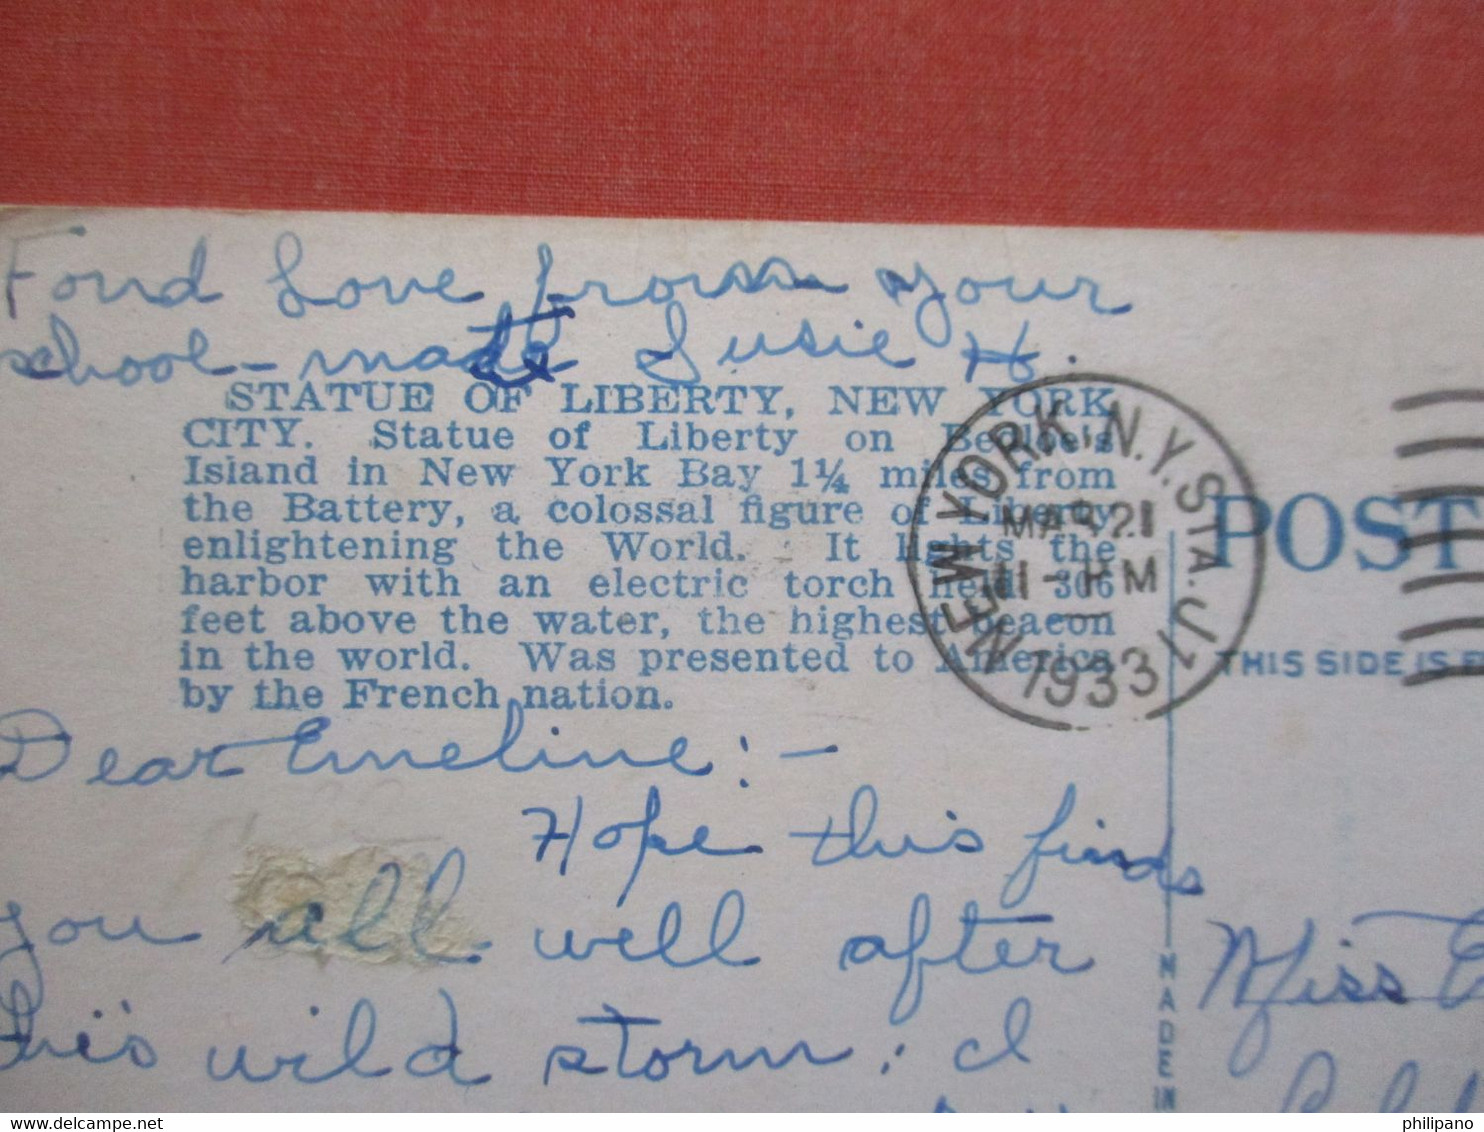 Fond Love from your
school-mate Susie H.
STATUE OF LIBERTY, NEW YORK
CITY. Statue of Liberty on Bedloe's
Island in New York Bay 1¼ miles from
the Battery, a colossal figure of Liberty
enlightening the World. It lights the
harbor with an electric torch held 306
feet above the water, the highest beacon
in the world. Was presented to America
by the French nation.
NEW YORK, N.Y. STA. J
MAR 21
11 - PM
1933
POST
THIS SIDE IS
Dear Emeline:-
Hope this finds
you all well after
this wild storm; I
Miss E
MADE IN
philipano